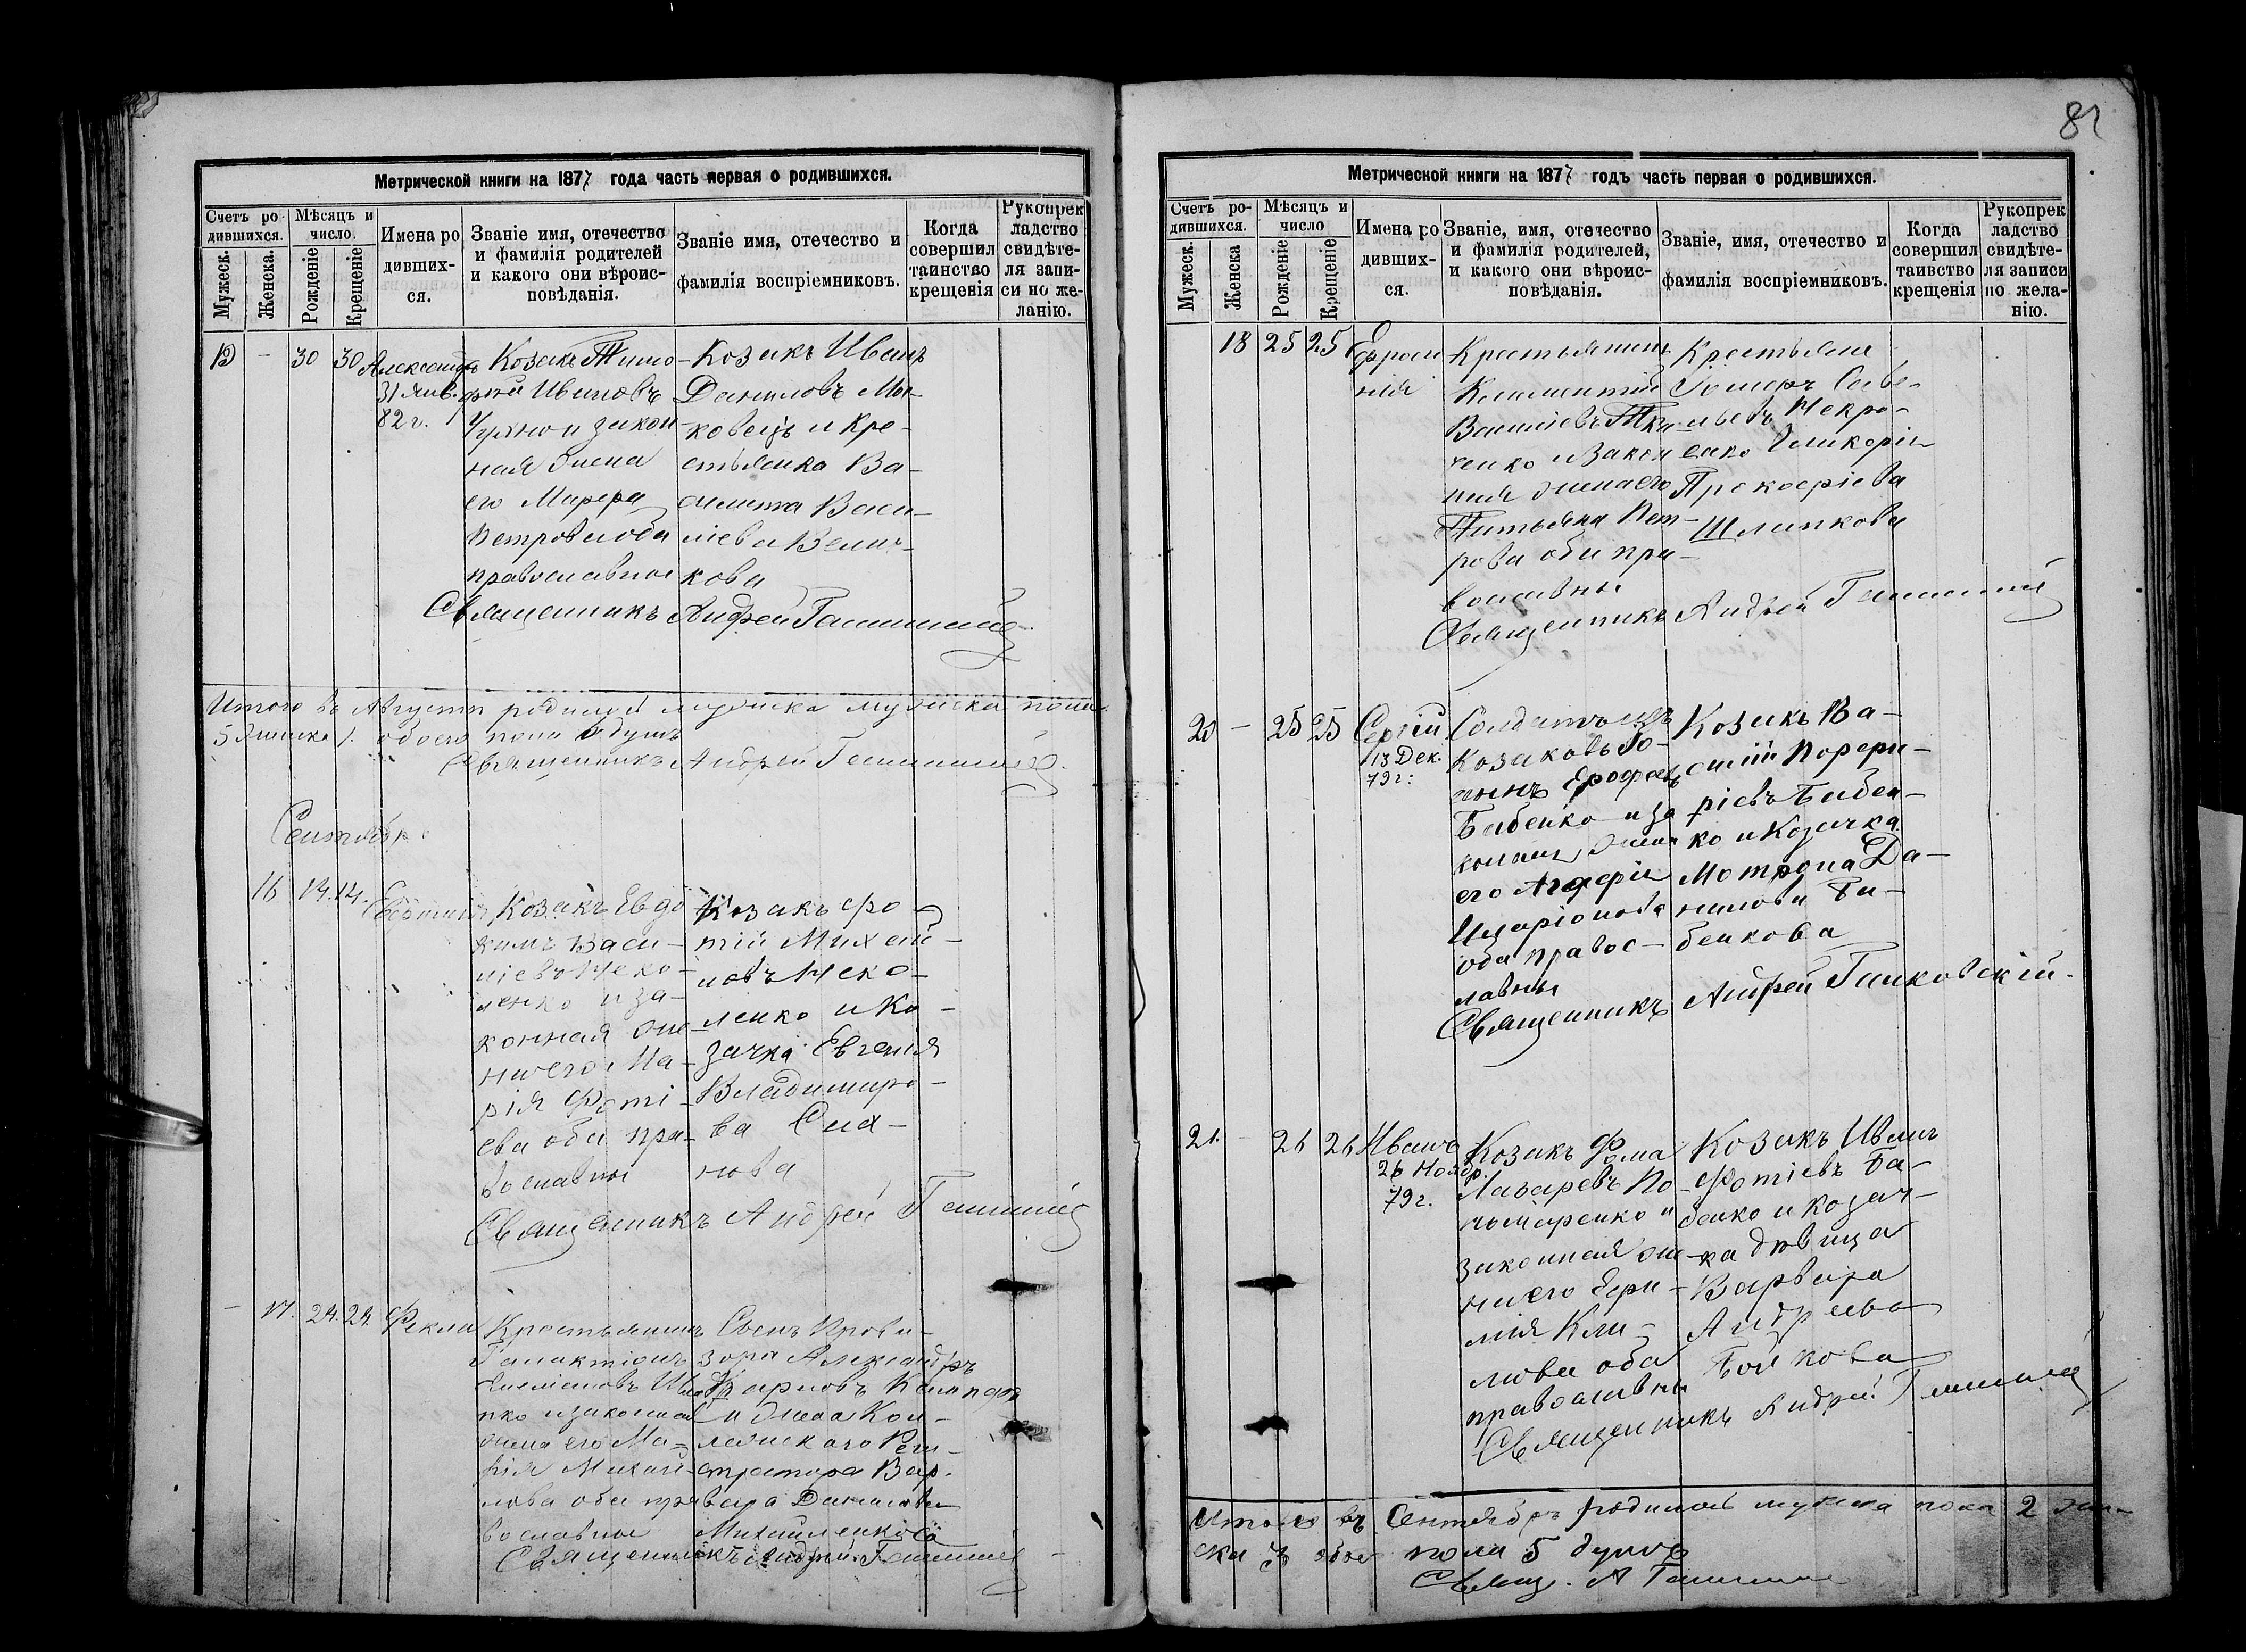 Метрической книги на 1877 года часть первая о родившихся.
Счетъ ро-
дившихся.
Мѣсяцъ и
число.
Имена ро
дивших-
ся.
Званіе имя, отечество
и фамилія родителей
и какого они вѣроис-
повѣданія.
Званіе имя, отечество и
фамилія воспріемниковъ.
Когда
совершил
таинство
крещенія
Рукопрек
ладство
свидѣте-
ля запи-
си по же-
ланію.
Мужеск.
Женска.
Рожденіе
Крещеніе
19 - 30 30 Александръ
31 Янв.
82 г.
Козакъ Тимо-
фей Ивановъ
и закон
ная жена
его Марфа
Петрова оба
православные
Козакъ Иванъ
Даниловъ
ковецъ и Кре-
стьянка Ва-
силиса Васи-
ліева Велич-
кова
Священникъ Андрей
Итого въ Августѣ родилось мужска пола
5 женска 1. обоего пола 6 душъ
Священникъ Андрей
Сентябрь
16 14. 14.
Козакъ Евдо
кимъ Васи-
ліевъ
ленко и за-
конная же-
на его Ма-
рія Фоті-
ева оба пра-
вославные
Козакъ Фо-
тій Михай-
ловъ
ленко и Ко-
зачка Евгенія
Владимиро-
ва
нова
Священникъ Андрей
- 17. 24. 24. Фекла
Крестьянинъ
Галактіонъ
нко и законная
жена его Ма-
рія Михай-
лова оба пра
вославные
Сынъ Прови-
зора Александръ
Карловъ
и жена Кол-
лежскаго Реги-
стратора Вар-
вара Данилова
Михайленкова
Священникъ Андрей
81
Метрической книги на 1877 годъ часть первая о родившихся.
Счетъ ро-
дившихся.
Мѣсяцъ и
число
Имена ро
дивших-
ся.
Званіе, имя, отечество
и фамилія родителей,
и какого они вѣроис-
повѣданія.
Званіе, имя, отечество и
фамилія воспріемниковъ.
Когда
совершил
таивство
крещенія
Рукопрек
ладство
свидѣте-
ля записи
по жела-
нію.
Мужеск.
Женска
Рожденіе
Крещеніе
18 25 25 Ефроси
нія
Крестьянинъ
Климентій
Василіевъ Тка
ченко и Закон
ная жена его
Татьяна Пет-
рова оба пра-
вославны
Крестьяне
Саве-
льевъ Некра-
Гликерія
Прокофіева
Шляпкова
Священникъ Андрей
20 - 25 25 Сергій
13 Дек.
79 г:
Козаковъ
Ерофеевъ
Бабенко и за
конная жена
его Агафія
Иларіонова
оба правос-
лавны
Козакъ Ва-
силій Порфи-
ріевъ Бабен-
ко и Козачка
Мотрона Да-
нилова Ба-
бенкова
Священникъ Андрей Ганковскій.
21. - 26 26 Иванъ
26 Ноябр.
79 г.
Козакъ Фома
Лазаревъ По-
номаренко и
законная же-
на его Ефи-
мія Кли-
мова оба
православны
Козакъ Иванъ
Фотіевъ Ба-
бенко и козач-
ка дѣвица
Варвара
Андреева
Бойкова
Священникъ Андрей
Итого въ Сентябрѣ родилось мужска пола 2 жен-
ска 3 обоего пола 5 душъ
Свящ. А